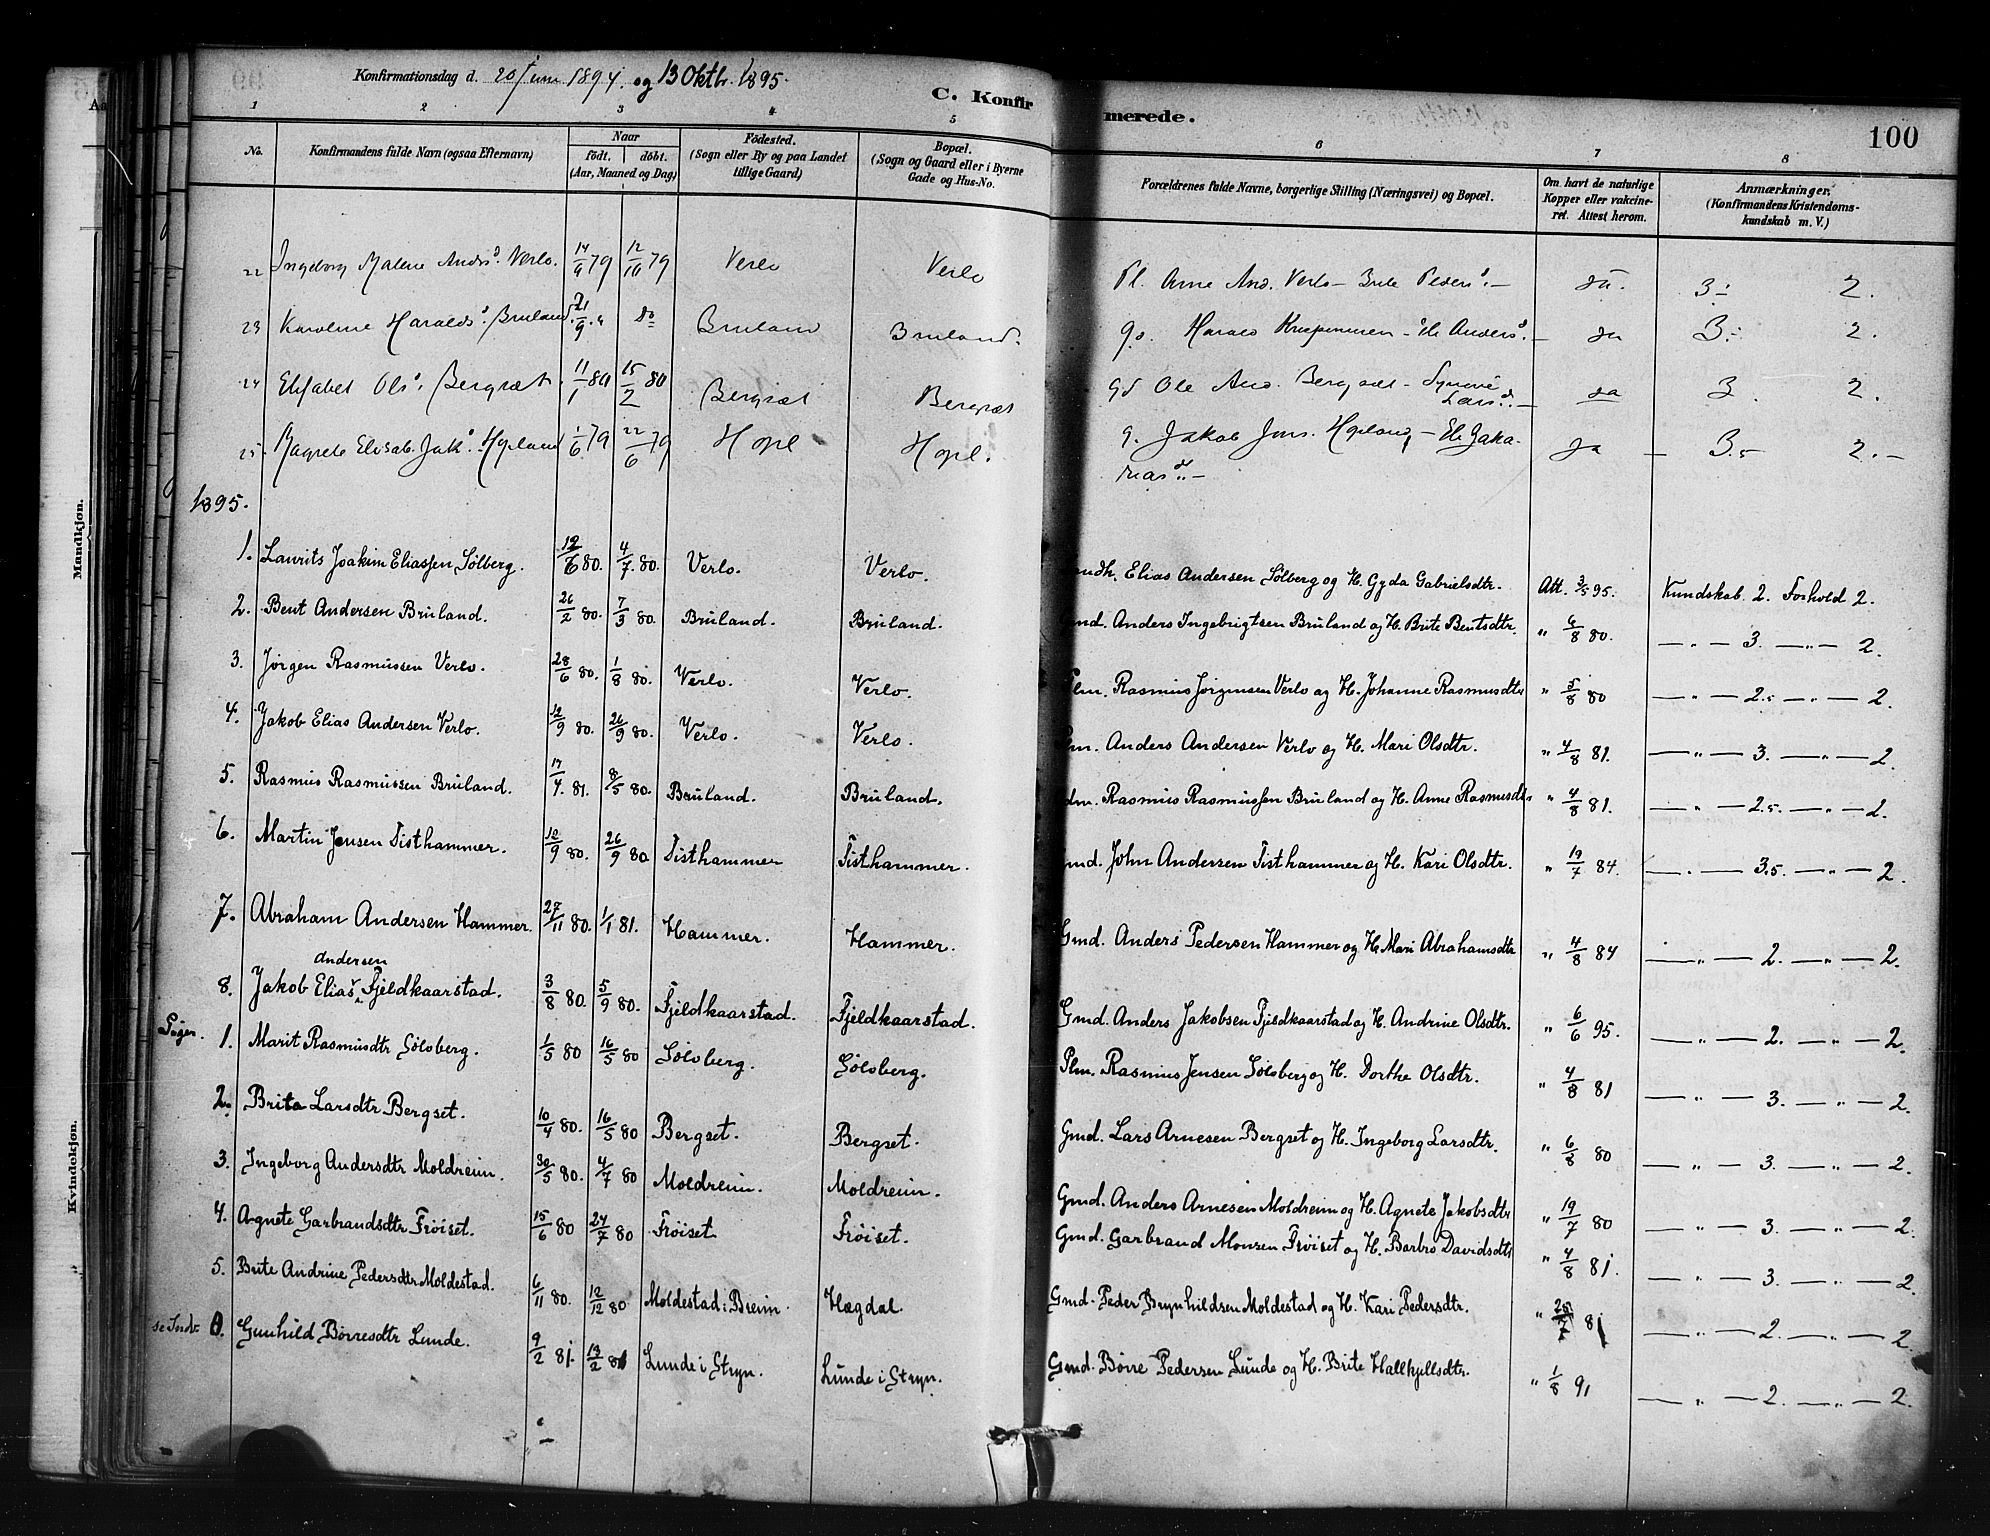 Konfirmationsdag d. 20 Juni 1894. og 13 Oktbr. 1895.
C. Konfir
merede.
100
1 2 3 4 5 6 7 8
No.
Konfirmandens fulde Navn (ogsaa Efternavn)
Naar
født. døbt.
(Aar, Maaned og Dag)
Födested.
(Sogn eller By og paa Landet
tillige Gaard)
Bopæl.
(Sogn og Gaard eller i Byerne
Gade og Hus-No.
Forældrenes fulde Navne, borgerlige Stilling (Næringsvei) og Bopæl.
Om havt de naturlige
Kopper eller vakcine-
ret. Attest herom.
Anmærkninger.
(Konfirmandens Kristendoms-
kundskab m. V.)
22 Ingeborg Malene Andrsd. Verlo. 14/9 79 12/10 79 Verlo Verlo Pl. Arne And. Verlo - Brite Pedersd. - ja. 3. 2.
23 Karoline Haralds d. Bruland. 21/9 " do Bruland Bruland. g. Harald - Andersd. - ja 3. 2.
24 Elisabet Olsd. Bergsæt. 11/1 80 15/2 80 Bergsæt Bergsæt gd Ole And. Bergsæt - Synnve
Larsd. - ja 3. 2.
25 Magrete Elisab. Jak d. Hopland 1/6 79 22/6 79 Hopl Hopl. g. Jakob Jons. Hopland, - Eli Jaka-
riasd. - ja - 3.5 2. -
1895.
1. Laurits Joakim Eliassen Sølberg. 12/6 80. 4/7. 80. Verlo. Verlo. andh. Elias Andersen Sølberg og H. Gyda Gabrielsdtr. Att. 3/5 95. Kundskab 2. Forhold 2.
2. Bent Andersen Bruland. 26/2 80. 7/3 80. Bruland. Bruland. md. Anders Ingebrigtsen Bruland og H. Brite Bentsdtr. " 6/8 80. — " — 3. — " — 2.
3. Jørgen Rasmussen Verlo. 28/6 80. 1/8 80. Verlo. Verlo. Plm. Rasmus Jørgensen Verlo og H. Johanne Rasmusdtr " 5/8 80 — " — 2.5 — " — 2.
4. Jakob Elias Andersen Verlo. 12/9 80. 26/9 80. Verlo. Verlo. lm. Anders Andersen Verlo og H. Mari Olsdtr. " 4/8 81. — " — 3. — " — 2.
5. Rasmus Rasmussen Bruland. 17/4. 81. 8/5 80. Bruland. Bruland. dm. Rasmus Rasmussen Bruland og H. Anne Rasmusdtr " 4/8 81. — " — 2.5. — " — 2.
6. Martin Jensen Tisthammer. 12/9 80. 26/9 80. Tisthammer Tisthammer. Gmd. John Andersen Tisthammer og H. Kari Olsdtr. " 19/7 84. — " — 3.5. — " — 2.
7. Abraham Andersen Hammer. 27/11 80. 1/1 81. Hammer. Hammer. Gmd. Anders Pedersen Hammer og H. Mari Abrahamsdtr " 4/8 84 — " — 2. — " — 2.
Andersen
8. Jakob Elias Fjeldkaarstad. 3/8 80. 5/9 80. Fjeldkaarstad. Fjeldkaarstad. Gmd. Anders Jakobsen Fjeldkaarstad og H. Andrine Olsdtr. " 6/6 95. — " — 2. — " — 2.
Piger.
1. Marit Rasmusdtr Sølvberg. 1/5 80 16/5 80 Sølvberg. Sølvberg. Plm. Rasmus Jensen Sølvberg og H. Dorthe Olsdtr. " 4/8 81 — " — 3. — " — 2.
2. Brita Larsdtr Bergset. 10/4 80. 16/5 80 Bergset. Bergset. Gmd. Lars Arnesen Bergset og H. Ingeborg Larsdtr. " 6/8 80 — " — 3. — " — 2.
3. Ingeborg Andersdtr Moldreim. 30/5 80. 4/7 80 Moldreim. Moldreim. Gmd. Anders Arnesen Moldreim og H. Agnete Jakobsdtr " 19/7 80 — " — 3. — " — 2.
4. Agnete Garbrandsdtr Frøiset. 15/6 80 24/7 80 Frøiset Frøiset. Gmd. Garbrand Monsen Frøiset og H. Barbro Davidsdtr " 4/8 81. — " — 3. — " — 2.
5. Brite Andrine Pedersdtr Moldestad. 6/11 80. 12/12 80 Moldestad i Breim. Hægdal. Gmd. Peder Brynhildsen Moldestad og H. Kari Pedersdtr. " 25/7 81 — " — 2. — " — 2.
0. Gunhild Børresdtr Lunde. 9/2 81. 13/2 81 Lunde i Stryn. Lunde i Stryn. Gmd. Børre Pedersen Lunde og H. Brite Hallkjellsdtr. " 1/8 91 — " — 2. — " — 2.
Mandkjøn.
Kvindekjøn.